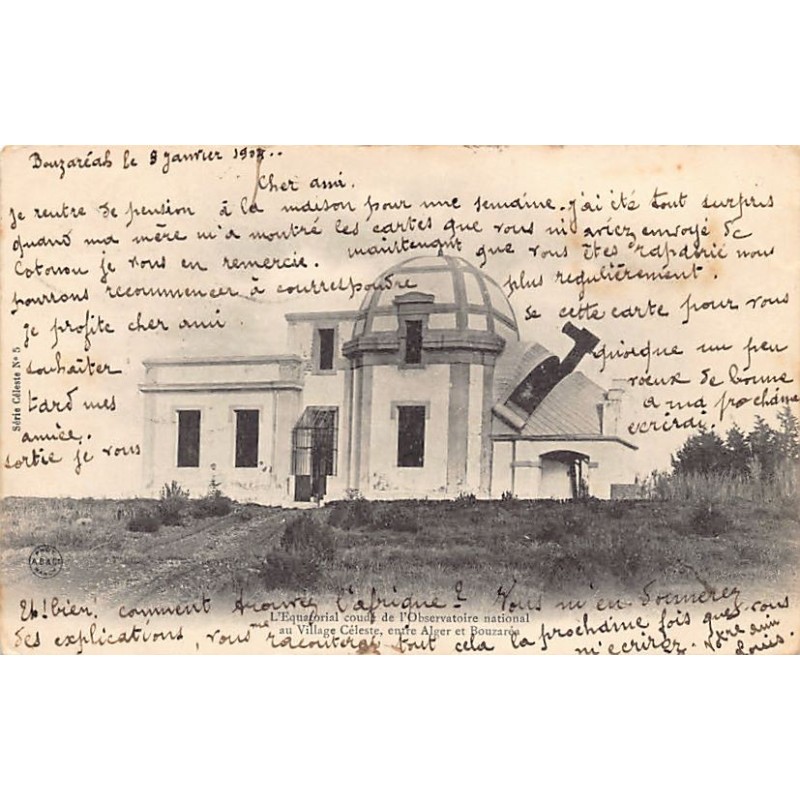 Bouzaréah le 8 Janvier 190
Cher ami.
Je rentre de pension à la maison pour une semaine. j'ai été tout surpris
quand ma mère m'a montré les cartes que vous m'aviez envoyé de
Cotonou je vous en remercie. maintenant que vous êtes rapdrié nous
pourrons recommencer à courrespoudre plus regulièrement.
Je profite cher ami de cette carte pour vous
souhaiter quoique un peu
tard mes voeux de bonne
année. a ma prochaine
sortie je vous ecrirai.
Série Céleste No 5
A.B.&C.
Eh! bien, comment trouvez l'afrique? Vous m'en donnerez
L'Equatorial coudé de l'Observatoire national
au Village Céleste, entre Alger et Bouzaréa
des explications, vous me raconterez tout cela la prochaine fois que vous
m'ecrirez. Votre ami
Louis.